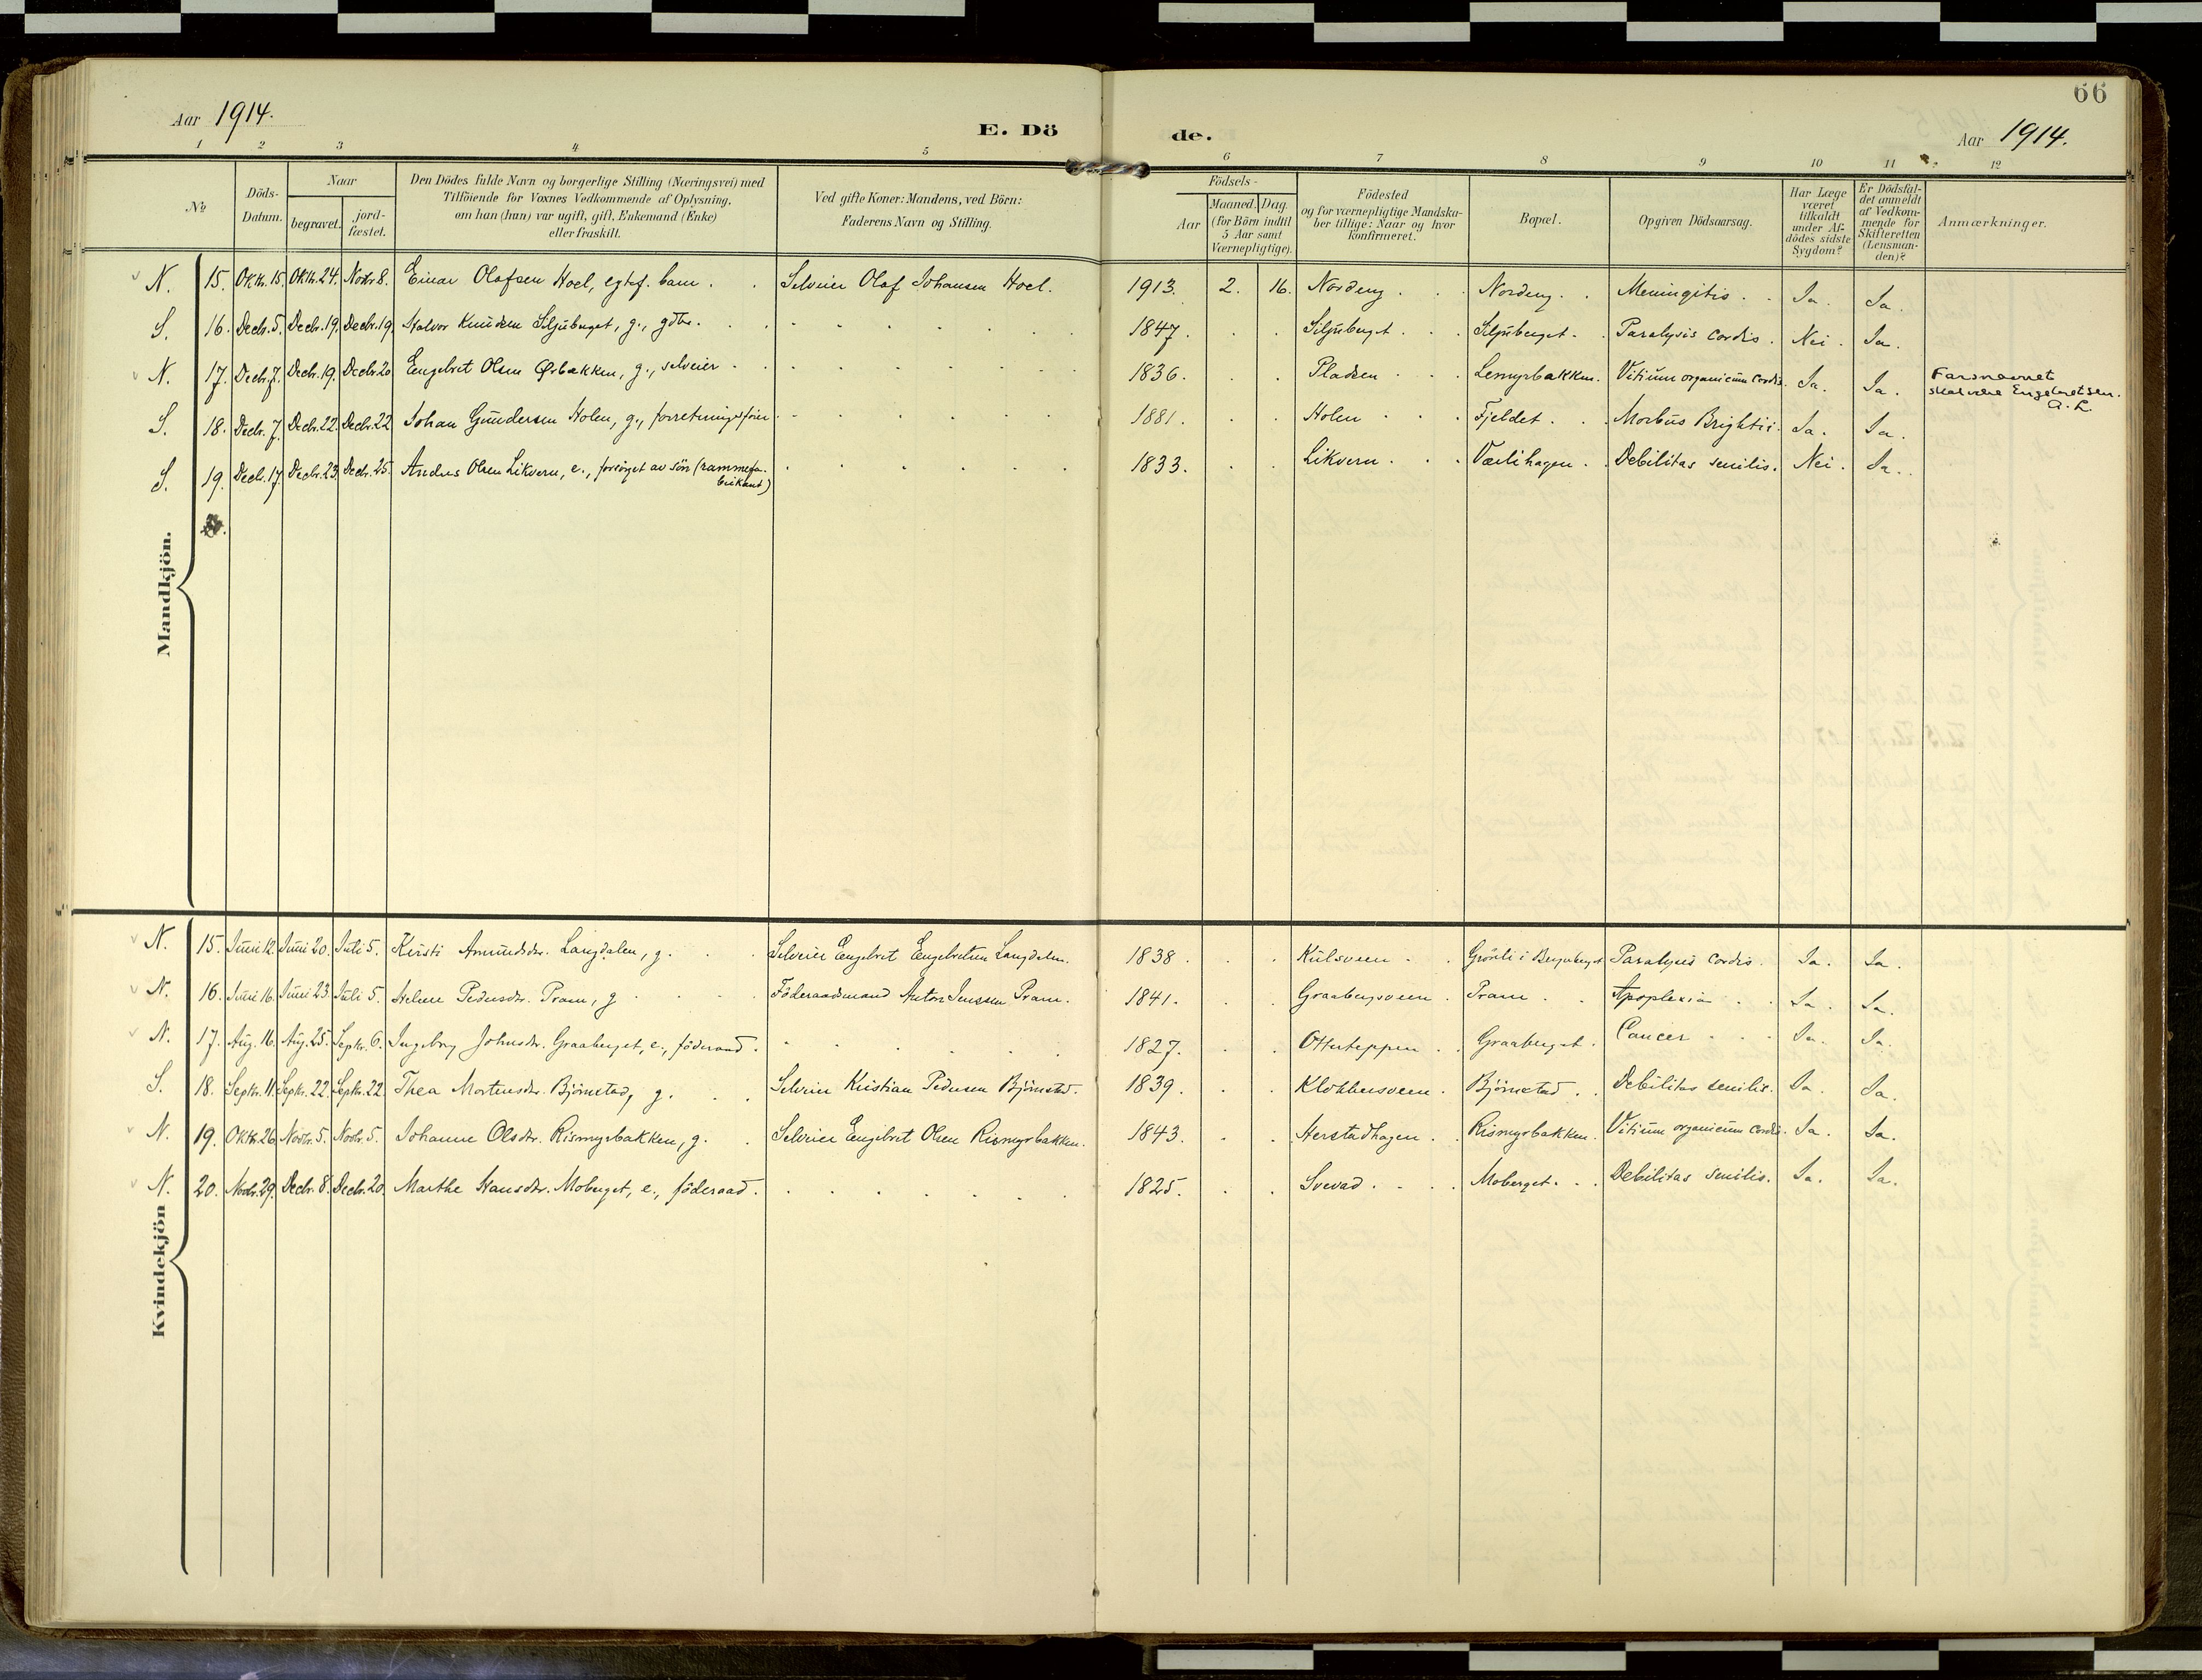 66
Aar 1914.
E. Dö de.
Aar 1914.
1 2 3 4 5 6 7 8 9 10 11 12
No
Döds-Datum.
Naar
begravet.
jord-fæstet.
Den Dödes fulde Navn og borgerlige Stilling (Næringsvei) med
Tilföiende for Voxnes Vedkommende af Oplysning,
om han (hun) var ugift, gift, Enkemand (Enke)
eller fraskilt.
Ved gifte Koner: Mandens, ved Börn:
Faderens Navn og Stilling.
Födsels-
Aar
Maaned. Dag.
(for Börn indtil
5 Aar samt
Værnepligtige).
Födested
og for værnepligtige Mandska-
ber tillige: Naar og hvor
konfirmeret.
Bopæl.
Opgiven Dödsaarsag.
Har Læge
været
tilkaldt
under Af-
dödes sidste
Sygdom?
Er Dödsfal-
det anmeldt
af Vedkom-
mende for
Skifteretten
(Lensman-
den)?
Anmærkninger.
Mandkjön.
N. 15. Oktbr. 15. Oktbr. 24. Novbr 8. Einar Olafsen Hoel, egtef. barn . . Selveier Olaf Johansen Hoel. 1913. 2. 16. Nordeng . . . Nordeng . . Meningitis . . Ja . Ja .
S. 16. Decbr. 5. Decbr. 19. Decbr. 19. Halvor Knudsen Siljuberget, g., gdbr. . . 1847 . . . Siljuberget . . . Siljuberget . Paralysis cordis . Nei . Ja .
N. 17. Decbr. 7. Decbr. 19. Decbr. 20 Engebret Olsen Ørbækken, g., selveier . . 1836 . . . Pladsen . . . Lemyrbakken. Vitium organicum cordis. Ja. Ja . Farsnavnet
skal være Engebretsen.
A. L.
S. 18. Decbr. 7. Decbr. 22. Decbr. 22 Johan Gundersen Holen, g., forretningsfører . . 1881 . . . Holen . . . Fjeldet . . Morbus Brightii . Ja . Ja .
S. 19. Decbr. 17. Decbr. 23. Decbr. 25 Andres Olsen Likvern, e., forsörget av sön (rammefa-
brikant) 1833 . . . Likvern . . . Værlihagen . Debilitas senilis . Nei . Ja . .
Kvindekjön
N. 15. Juni 12. Juni 20. Juli 5. Kirsti Amundsdtr. Langdalen, g. . . Selveier Engebret Engebretsen Langdalen. 1838 . . . Kulsveen . . Grönli i Bergeberget Paralysis cordis . Ja . Ja .
N. 16. Juni 16. Juni 23. Juli 5. Helene Pedersdtr. Pram, g . . . . Föderaadsmand Anton Jenssen Pram. 1841 . . . Graabergsveen . Pram . . Apoplexia . . Ja . Ja .
N. 17. Aug. 16. Aug. 25. Septbr. 6. Ingebrg Johnsdtr. Graaberget, e., föderaad . 1827. . . Otterteppen . . Graaberget . Cancer . . . Ja . Ja .
S. 18. Septbr. 11. Septbr. 22. Septbr. 22. Thea Mortensdtr. Björnstad, g . . . Selveier Kristian Pedersen Björnstad. 1839 . . . Klokkersveen . Björnstad . . Debilitas senilis . Ja . Ja .
N. 19. Oktbr. 26. Novbr. 5. Novbr. 5. Johanne Olsdtr. Rismyrbakken, g. . Selveier Engebret Olsen Rismyrbakken. 1843 . . . Herstadhagen . Rismyrbakken. Vitium organicum cordis. Ja . Ja .
N. 20. Novbr. 29. Decbr. 8. Decbr. 20. Marthe Hansdtr. Moberget, e., föderaad . 1825. . . Svevad . . . . Moberget . . . Debilitas senilis. Ja . Ja .